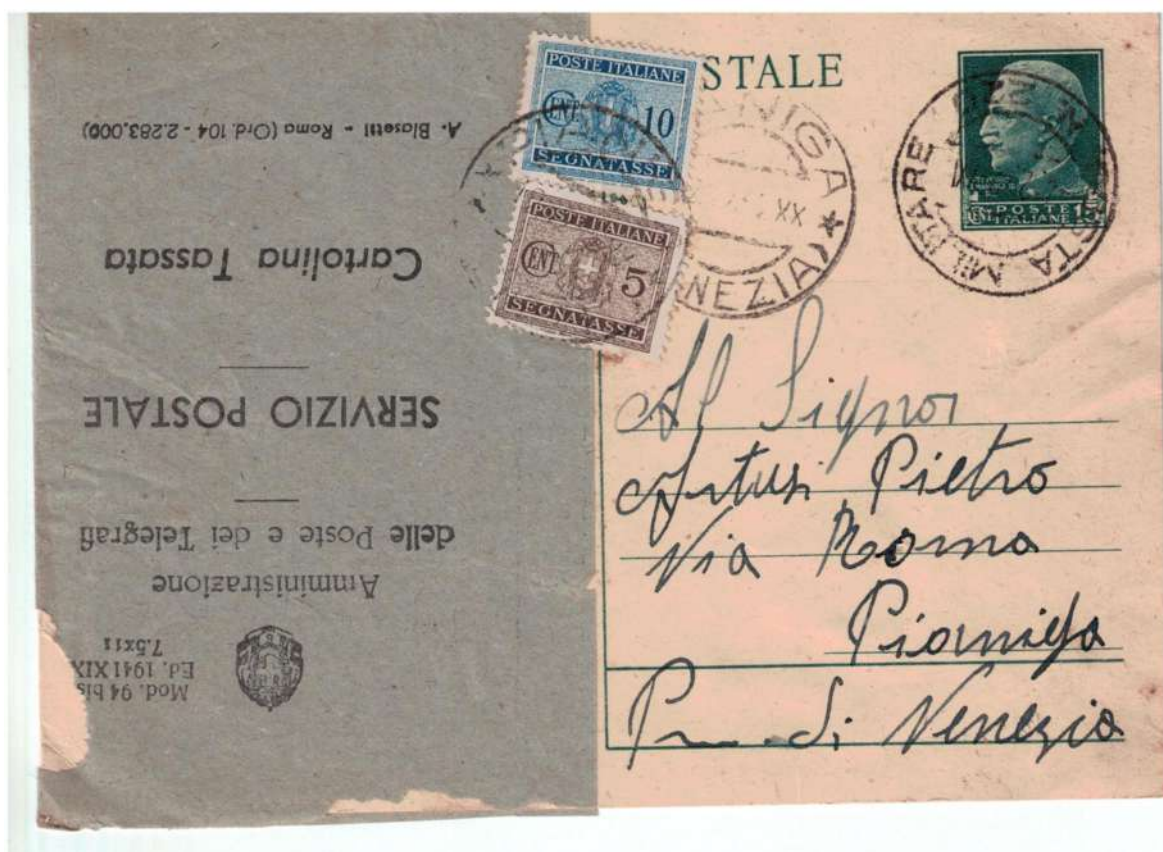 Mod. 94 bis
Ed. 1941 XIX
7.5x11
Amministrazione
delle Poste e dei Telegrafi
SERVIZIO POSTALE
Cartolina Tassata
A. Blasetti - Roma (Ord. 104 - 2.283.000)
POSTE ITALIANE
CENT. 10
SEGNATASSE
POSTE ITALIANE
CENT. 5
SEGNATASSE
STALE
NIGA
XX
NEZIA)
MILITARE
POSTE
ITALIANE
15
Al Signor
Artusi Pietro
Via Roma
Pianiga
di Venezia